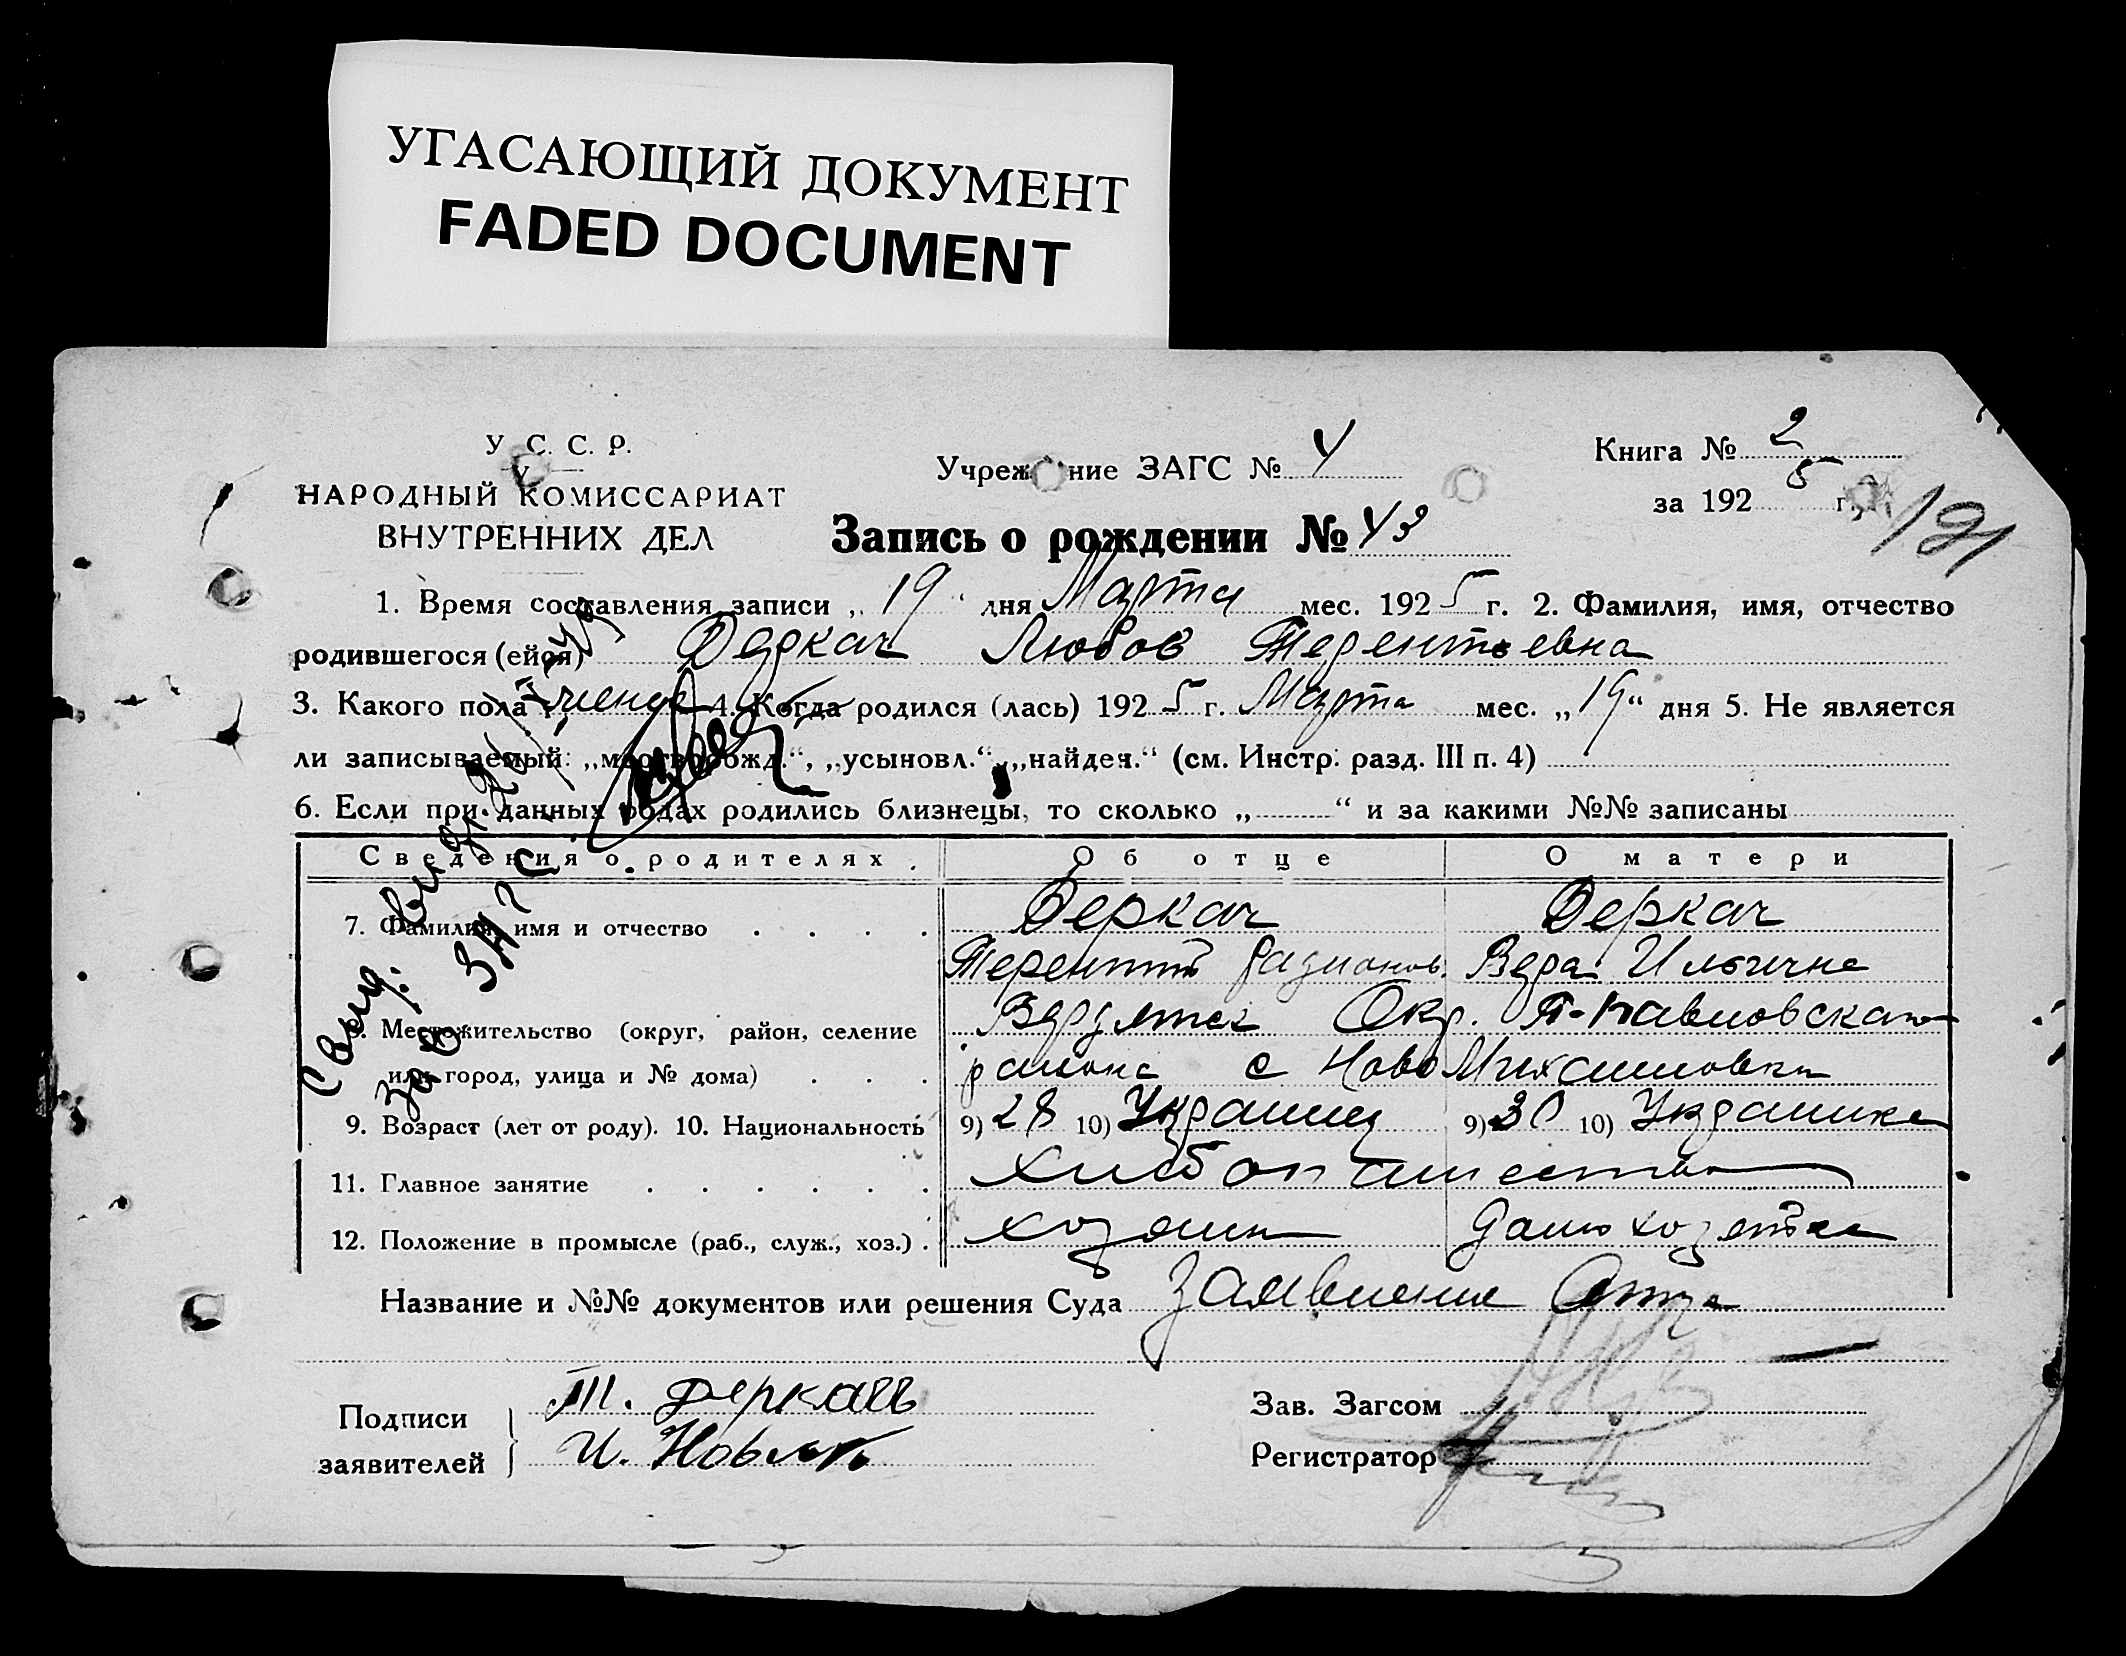 УГАСАЮЩИЙ ДОКУМЕНТ
FADED DOCUMENT
У. С. С. Р.
НАРОДНЫЙ КОМИССАРИАТ
ВНУТРЕННИХ ДЕЛ
Учреж ние ЗАГС № 4
Книга № 2
за 192 5 г.
191
Запись о рождении № 43
1. Время составления записи „ 19 " дня Марта мес. 192 5 г. 2. Фамилия, имя, отчество
родившегося (ейся) Деркач Любов Терентьевна
3. Какого пола 4. Когда родился (лась) 192 5 г. Марта мес. „ 19 " дня 5. Не является
ли записываемый: „мертворожд.", „усыновл." „найден." (см. Инстр. разд. III п. 4)
6. Если при данных родах родились близнецы, то сколько „ " и за какими №№ записаны
Сведения о родителях.
Об отце
О матери
7. Фамилия, имя и отчество
Деркач
Деркач
Терентий Радионов.
Вера Ильична
8. Местожительство (округ, район, селение
или город, улица и № дома)
Окр. П-павловская
района с Ново Михаиловки
9. Возраст (лет от роду). 10. Национальность
9) 28 10) Украинец
9) 30 10) Украинка
11. Главное занятие
хлебопашество
12. Положение в промысле (раб., служ., хоз.)
хозяин
домохозяйка
Название и №№ документов или решения Суда Заявление Отца
Подписи
заявителей
Т. Деркачь
Зав. Загсом
Регистратор
Зав ЗАГС